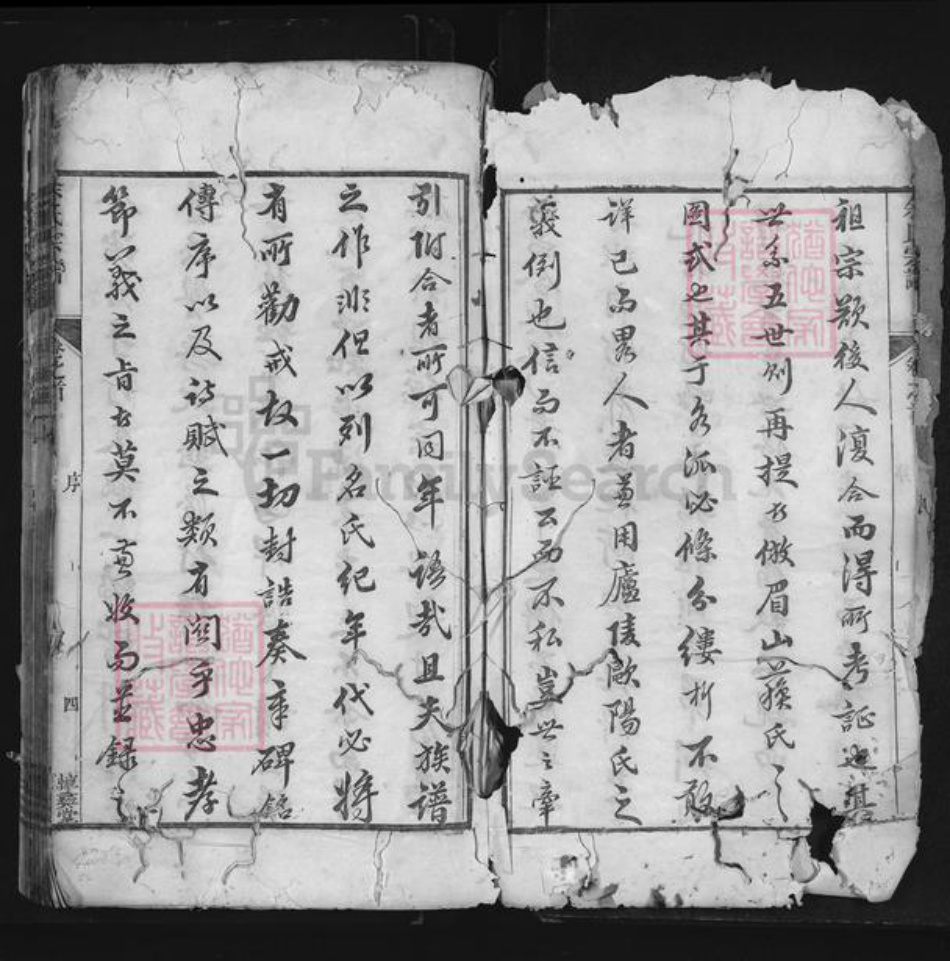 祖宗歟後人復合而得所考証也其
世系五世則再提以倣眉山蘇氏之
圖式也其于各派必條分縷析不敢
詳己而畧人者蓋用廬陵歐陽氏之
義例也信而不誣公而不私豈世之牽
引附合者所可同年語哉且夫族譜
之作非但以列名氏紀年代必將
有所勸戒故一切封誥奏章碑銘
傳序以及詩賦之類有關乎忠孝
節義之旨者莫不兼收而並錄之
序
四
FamilySearch